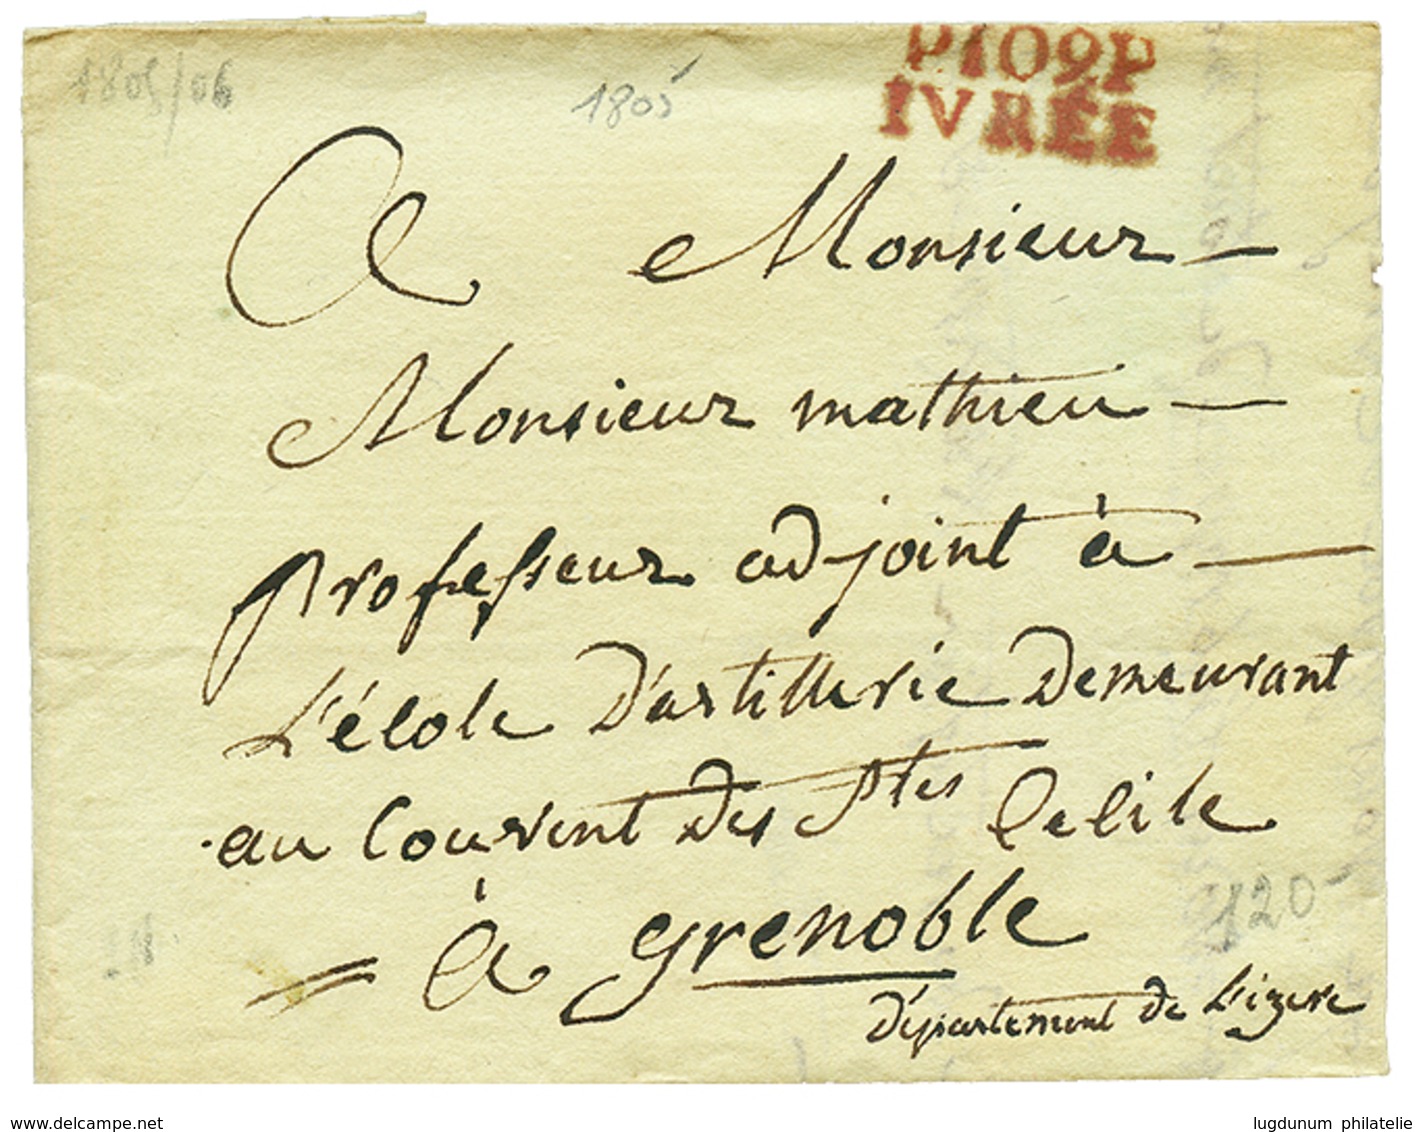 P109P
IVRÉE
1805/06
1805
A Monsieur
Monsieur mathieu
professeur adjoint à
L'école D'artillerie Demeurant
au Couvent des Stes Cecile
à grenoble
département de L'izere
120
delcampe.net
lugdunum philatelie